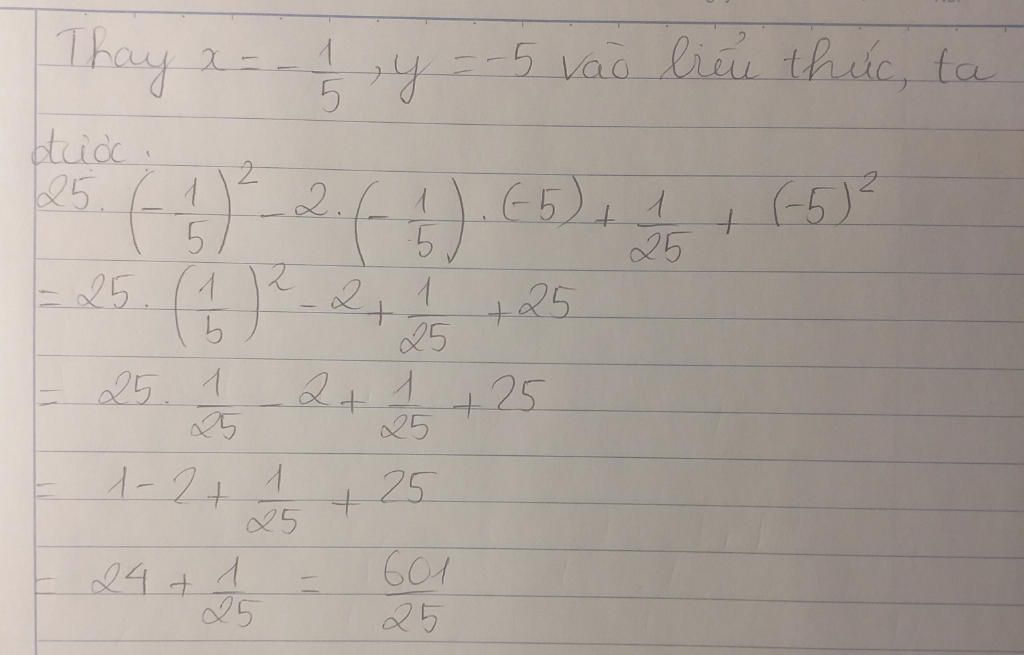 Thay x = -1/5, y = -5 vào biểu thức, ta
được:
25. (-1/5)² - 2. (-1/5) . (-5) + 1/25 + (-5)²
= 25. (1/5)² - 2 + 1/25 + 25
= 25. 1/25 - 2 + 1/25 + 25
= 1 - 2 + 1/25 + 25
= 24 + 1/25 = 601/25